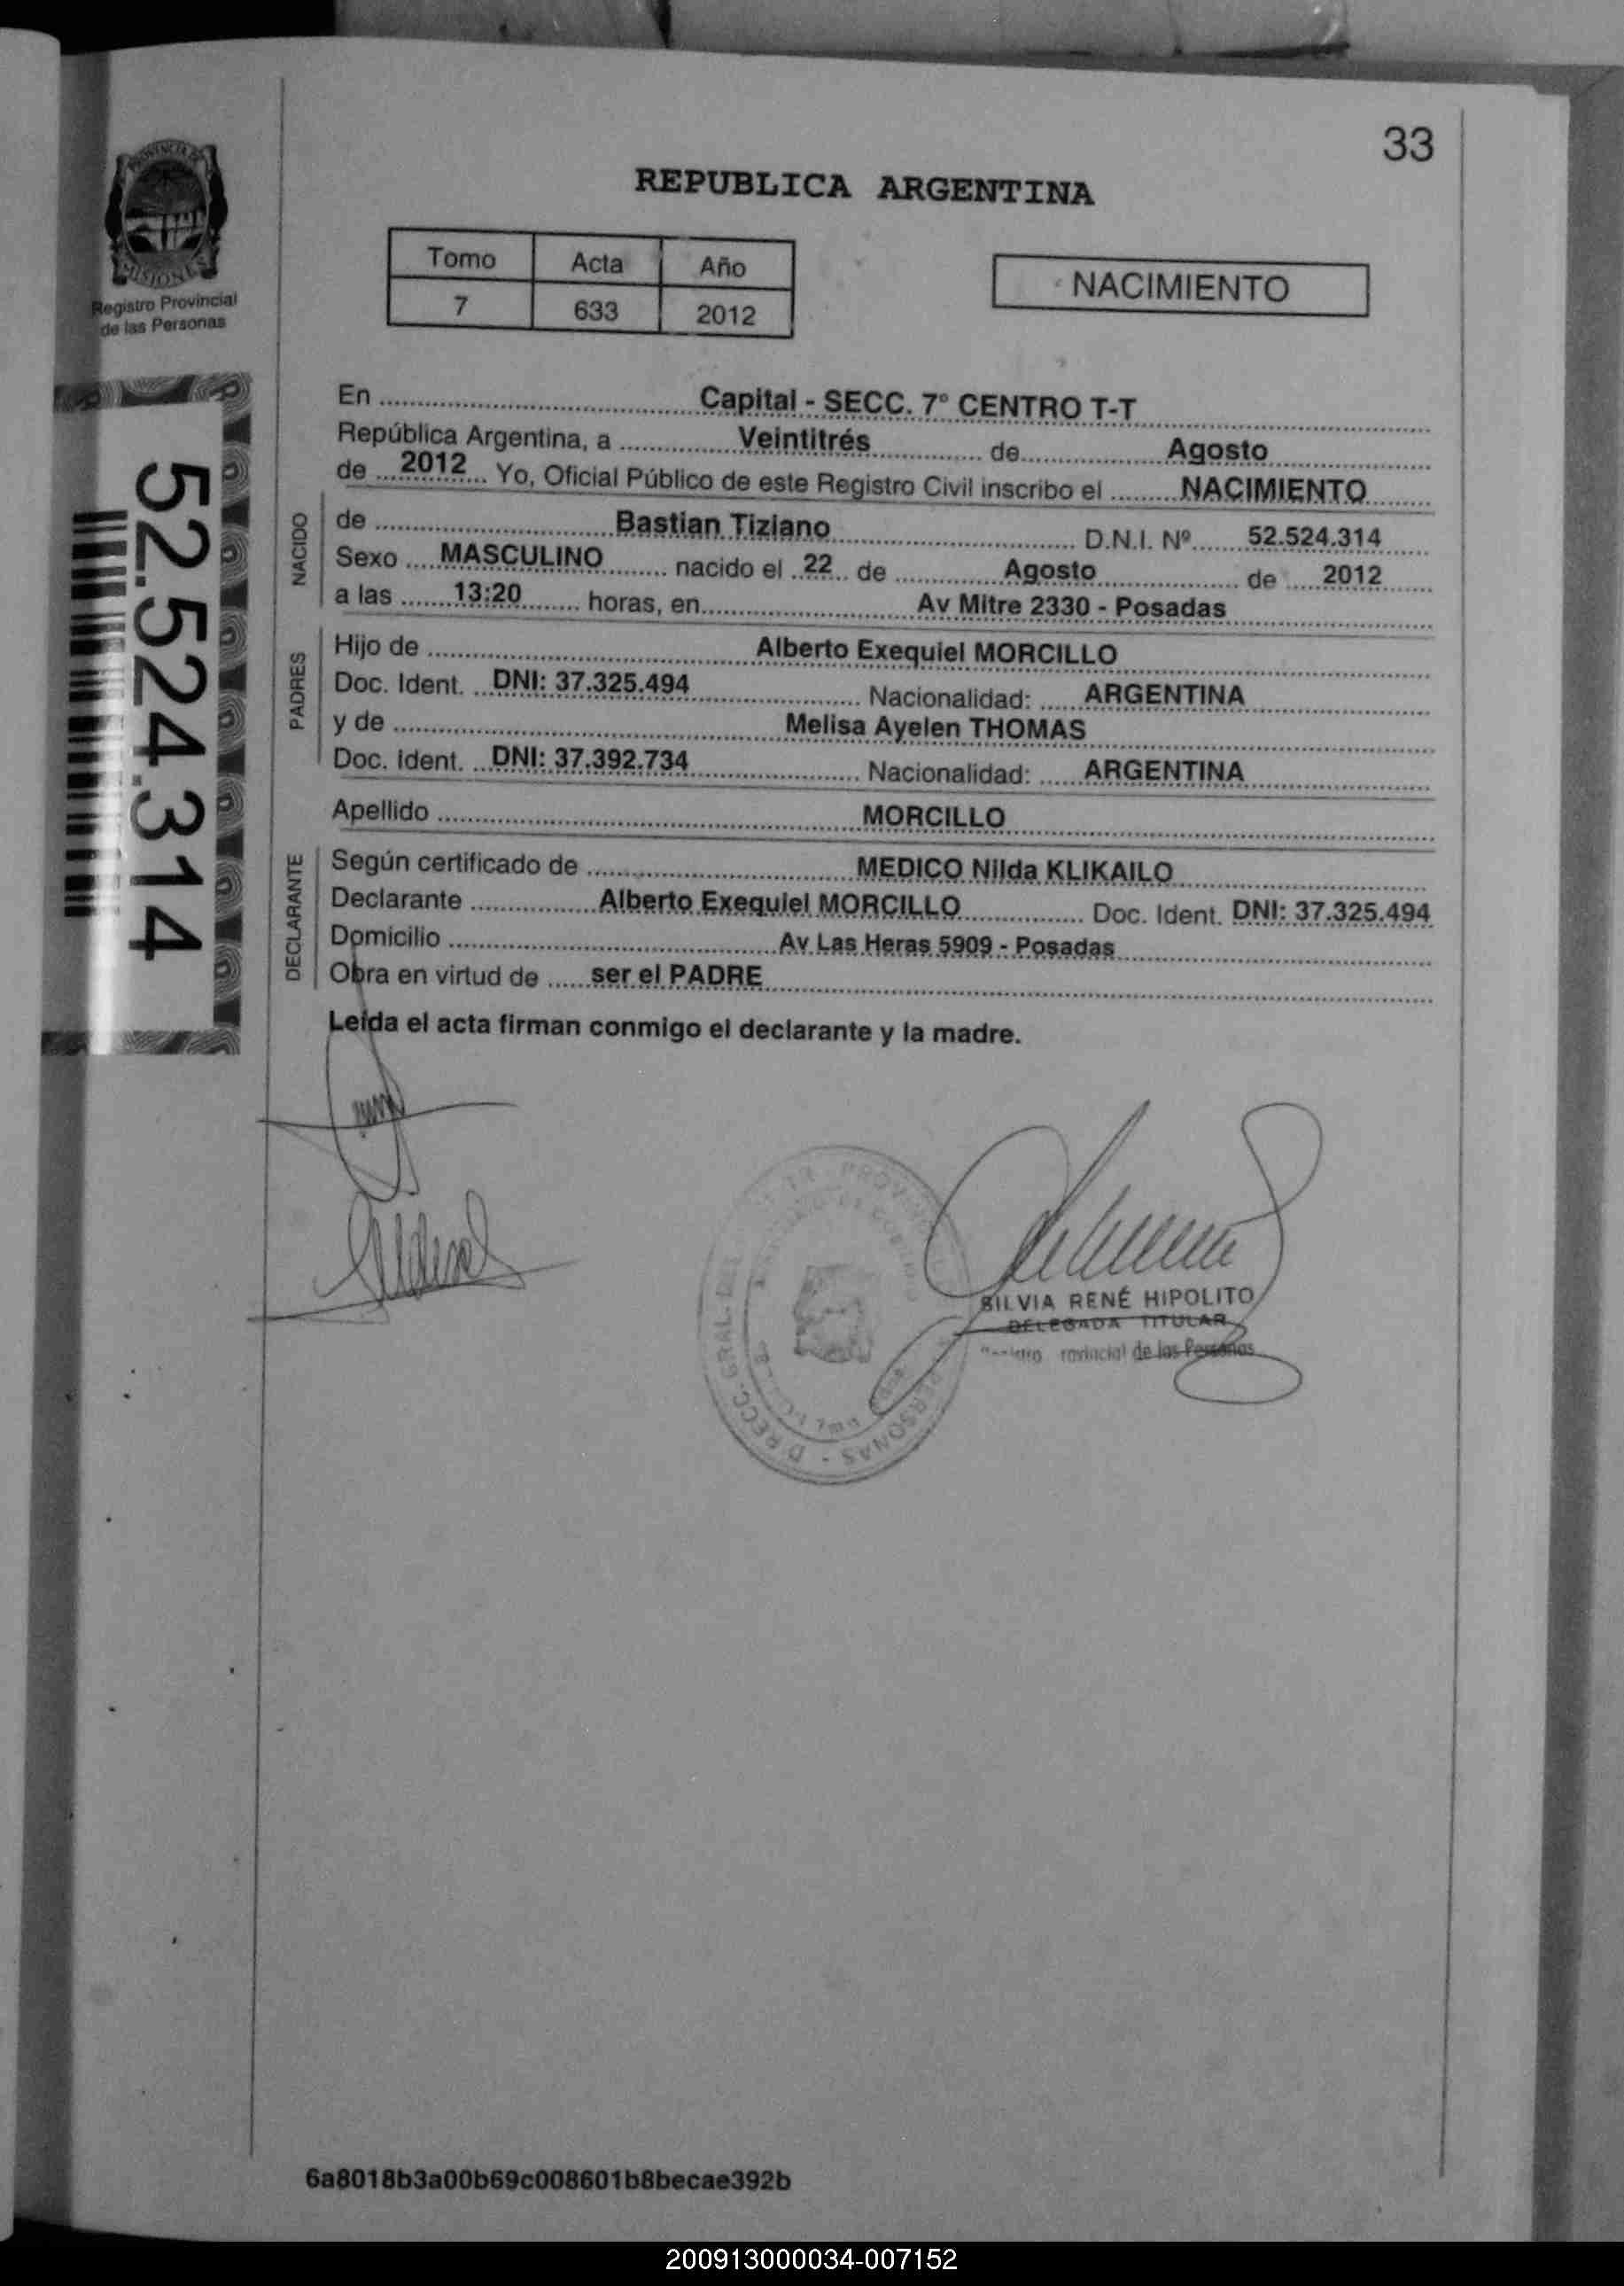 33
PROVINCIA DE
MISIONES
Registro Provincial
de las Personas
REPUBLICA ARGENTINA
Tomo Acta Año
7 633 2012
NACIMIENTO
52.524.314
En Capital - SECC. 7º CENTRO T-T
República Argentina, a Veintitrés de Agosto
de 2012 Yo, Oficial Público de este Registro Civil inscribo el NACIMIENTO
NACIDO
de Bastian Tiziano D.N.I. Nº 52.524.314
Sexo MASCULINO nacido el 22 de Agosto de 2012
a las 13:20 horas, en Av Mitre 2330 - Posadas
PADRES
Hijo de Alberto Exequiel MORCILLO
Doc. Ident. DNI: 37.325.494 Nacionalidad: ARGENTINA
y de Melisa Ayelen THOMAS
Doc. Ident. DNI: 37.392.734 Nacionalidad: ARGENTINA
Apellido MORCILLO
DECLARANTE
Según certificado de MEDICO Nilda KLIKAILO
Declarante Alberto Exequiel MORCILLO Doc. Ident. DNI: 37.325.494
Domicilio Av Las Heras 5909 - Posadas
Obra en virtud de ser el PADRE
Leída el acta firman conmigo el declarante y la madre.
SILVIA RENÉ HIPOLITO
DELEGADA TITULAR
de las Personas
DIRECC. GRAL. DEL
PERSONAS
6a8018b3a00b69c008601b8becae392b
200913000034-007152